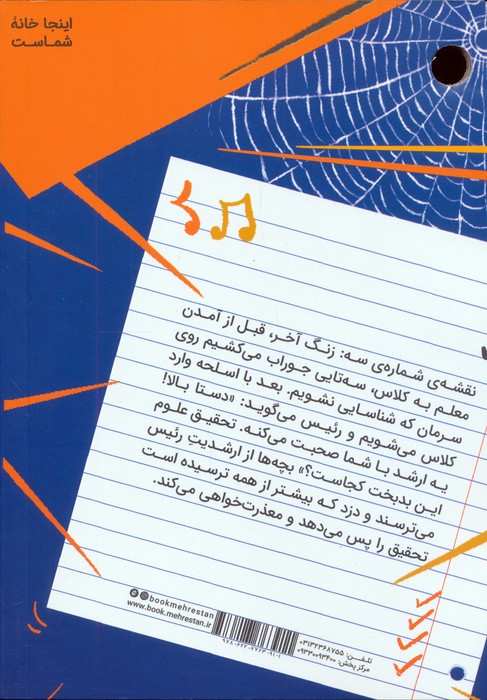 اینجا خانهٔ
شماست
نقشه‌ی شماره‌ی سه: زنگ آخر، قبل از آمدن
معلم به کلاس، سه‌تایی جوراب می‌کشیم روی
سرمان که شناسایی نشویم. بعد با اسلحه وارد
کلاس می‌شویم و رئیس می‌گوید: «دستا بالا!
یه ارشد با شما صحبت می‌کنه. تحقیق علوم
این بدبخت کجاست؟» بچه‌ها از ارشدیتِ رئیس
می‌ترسند و دزد که بیشتر از همه ترسیده است
تحقیق را پس می‌دهد و معذرت‌خواهی می‌کند.
@bookmehrestan
www.book.mehrestan.ir
تلفن: ۰۳۱۳۲۳۶۸۷۵۵
مرکز پخش: ۰۹۳۳۰۰۹۳۴۰۰